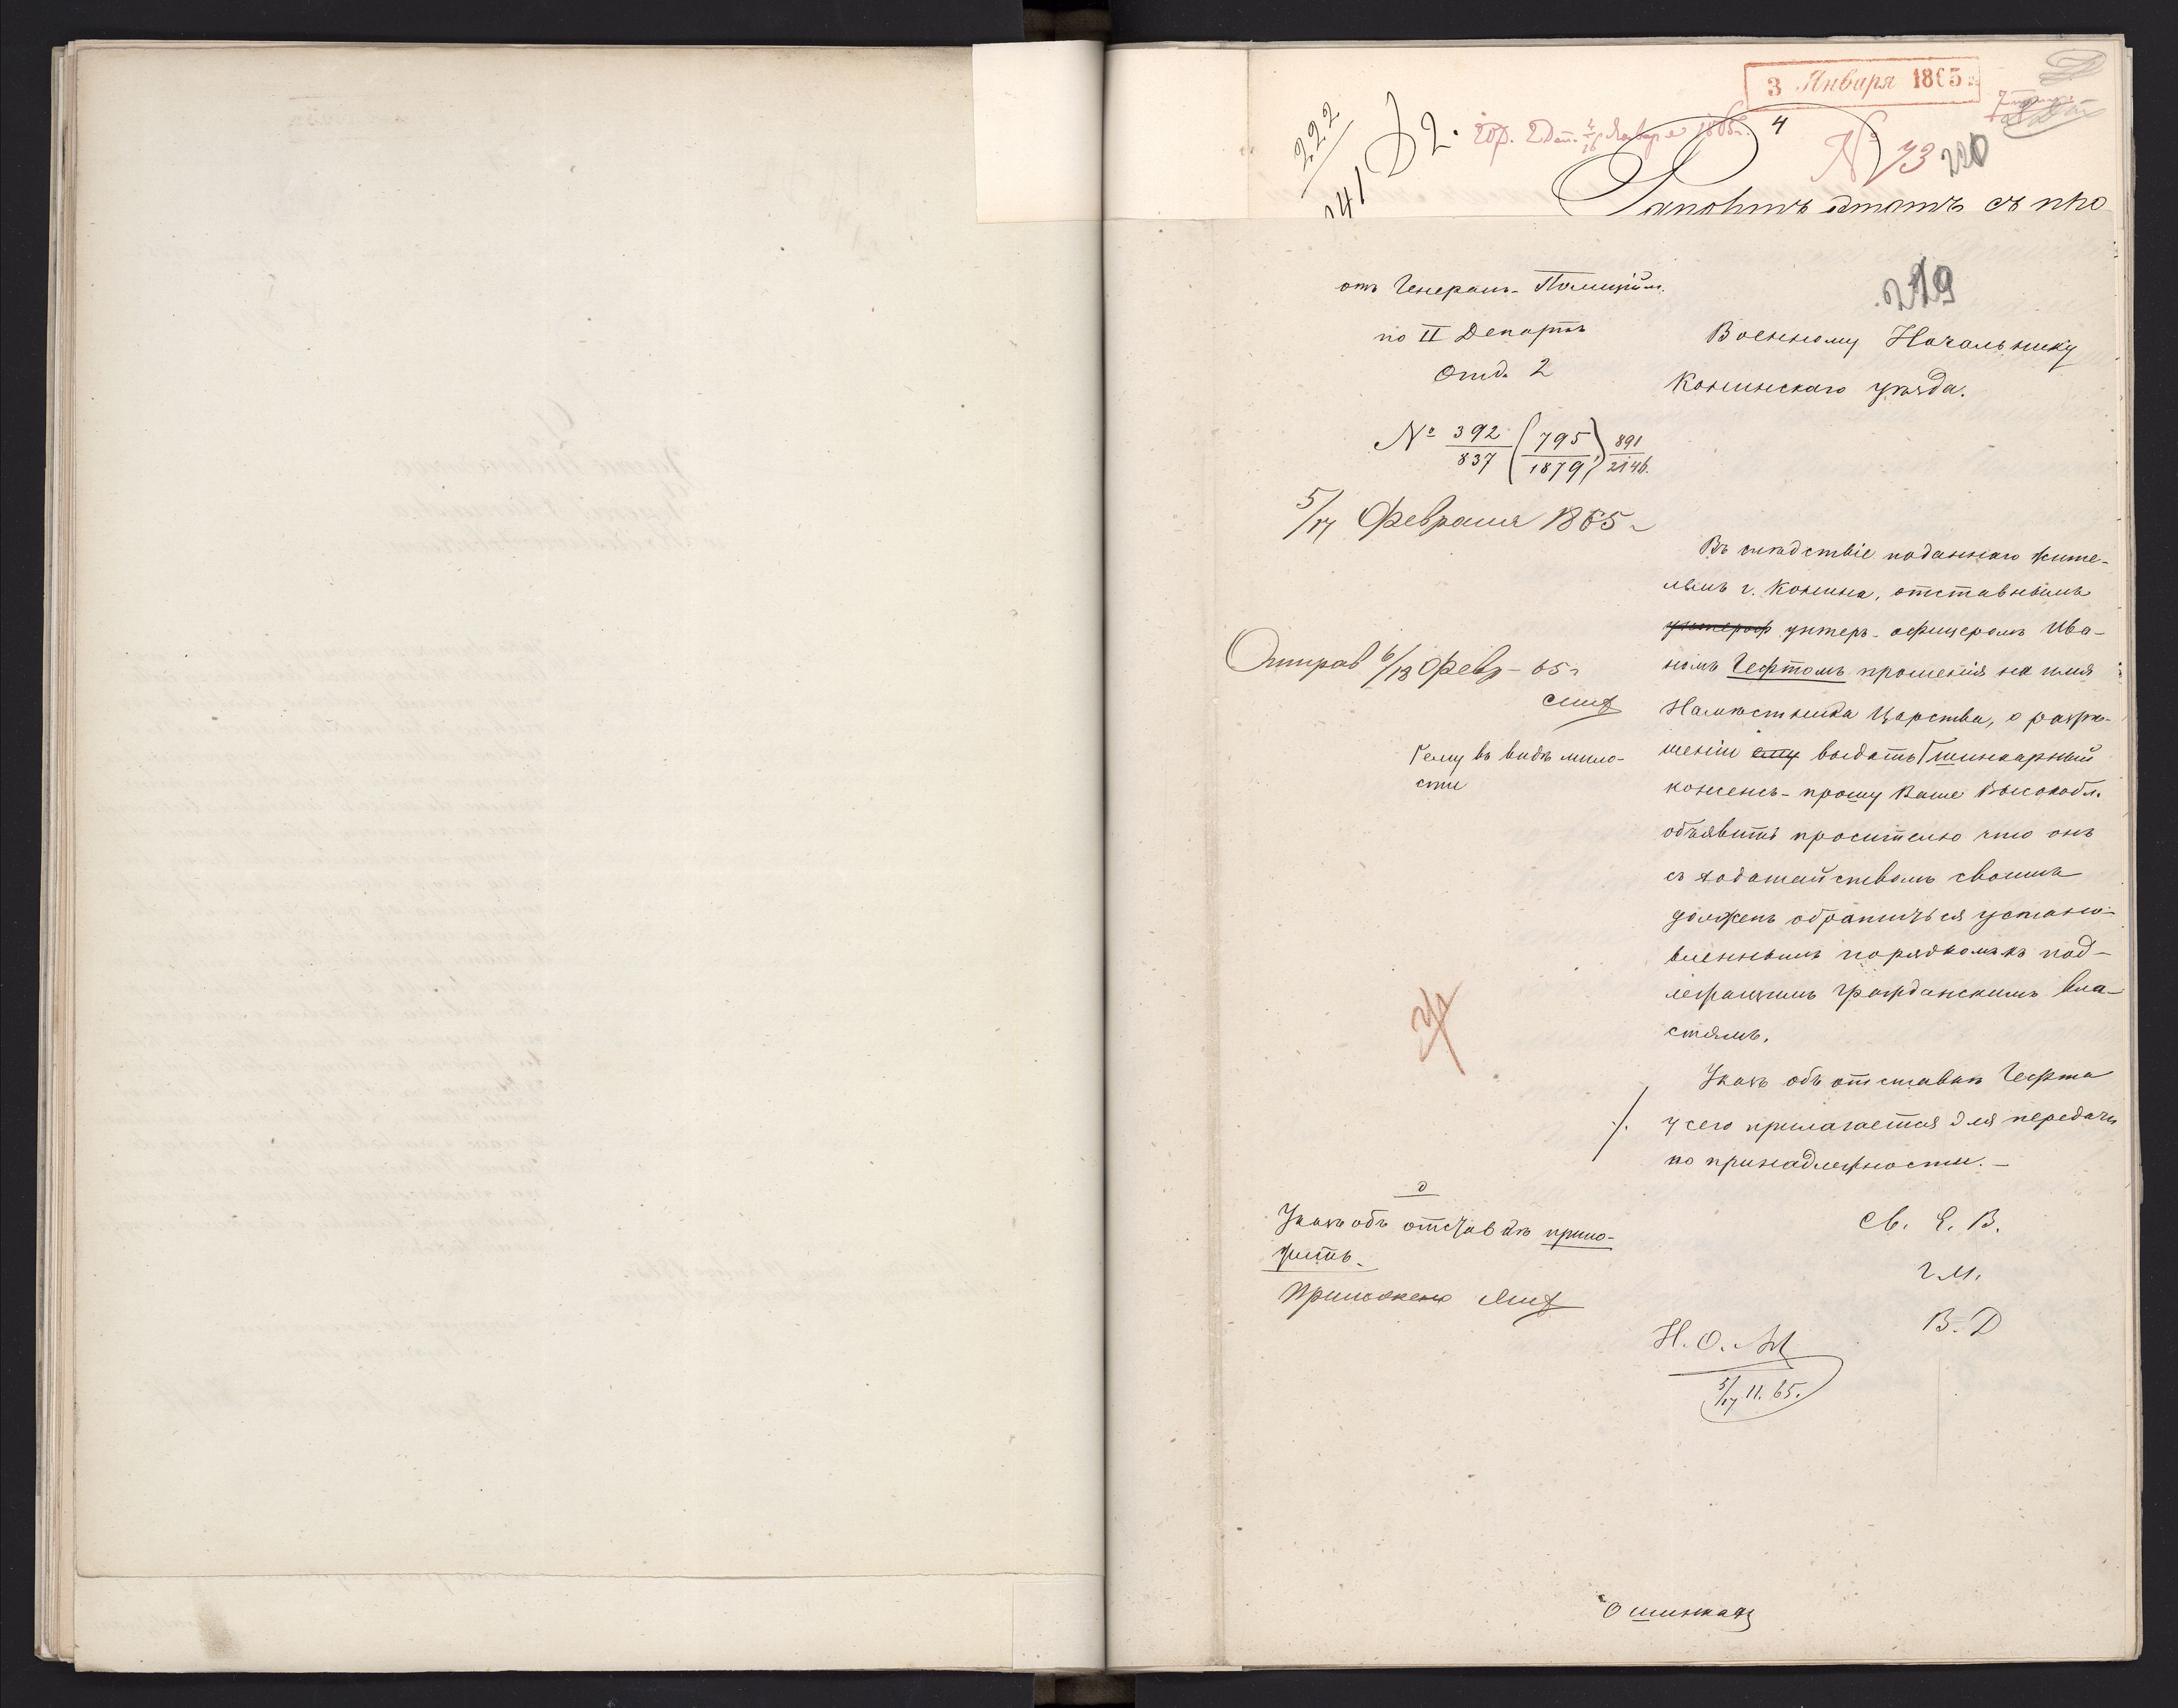 3 Января 1865
222
241
Д 2.
4
№ 73
220
Рапортъ этотъ съ про
219
отъ Генералъ-Полицийм.
по II Департ
Отд. 2
№ 392/837 (795/1879) 891/2146.
5/17 Февраля 1865 г
Военному Начальнику
Конинскаго уѣзда.
Въ слѣдствіе поданнаго жите-
лемъ г. Конина, отставнымъ
унтероф унтеръ-офицеромъ Ива-
номъ Гефтомъ прошенія на имя
Намѣстника Царства, о разрѣ-
шеніи ему выдать шинкарный
консенсъ - прошу Ваше Высокобл.
объявить просителю что онъ
съ ходатайствомъ своимъ
долженъ обратиться устано-
вленнымъ порядкомъ къ под-
лежащимъ гражданскимъ вла-
стямъ.
Указъ объ отставкѣ Гефта
у сего прилагается для передачи
по принадлежности. -
Отправ 6/18 Февр - 65 г
ему въ видѣ мило-
сти
Указъ объ отставкѣ прило-
жить.
Приложено
Св. Е. В.
Г. М.
В. Д
Н. О.
5/17 II. 65.
О шинкахъ